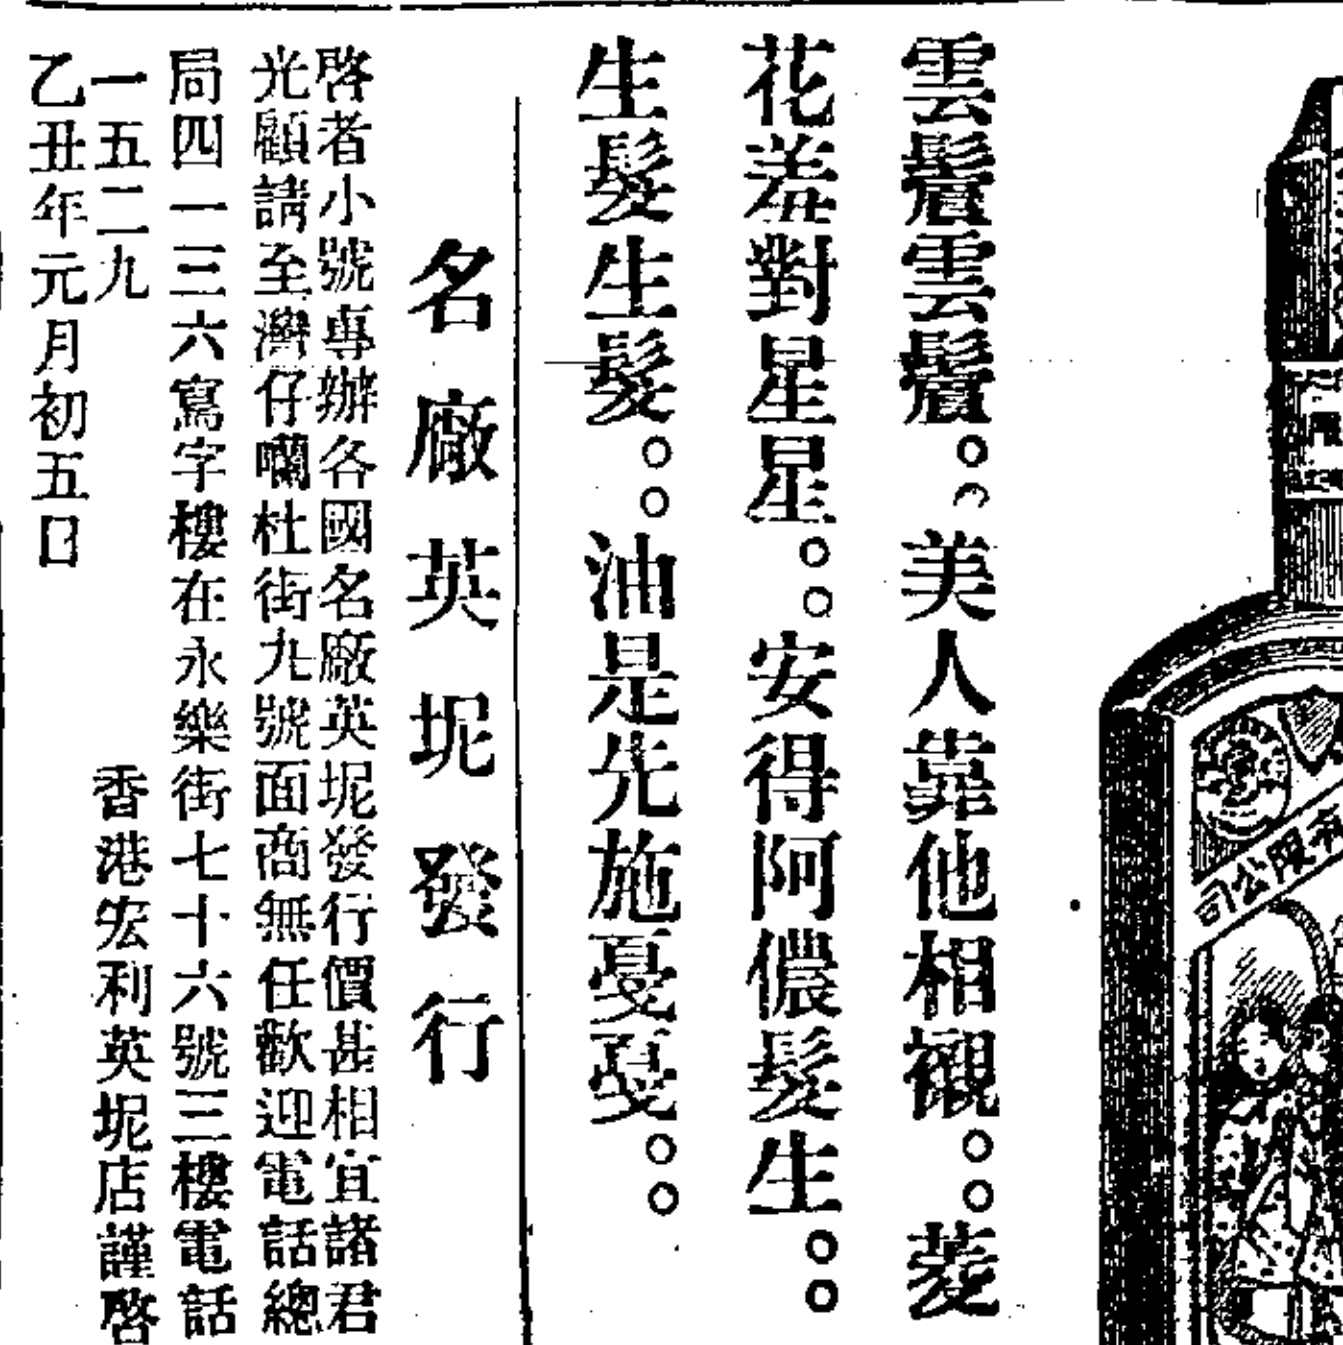 雲鬢雲鬢。。美人靠他相襯。。菱
花羞對星星。。安得阿儂髮生。。
生髮生髮。。油是先施戛戛。。
名廠英坭發行
啓者小號專辦各國名廠英坭發行價甚相宜諸君
光顧請至灣仔囒杜街九號面商無任歡迎電話總
局四一三六寫字樓在永樂街七十六號三樓電話
一五二九
香港宏利英坭店謹啓
乙丑年元月初五日
限公司